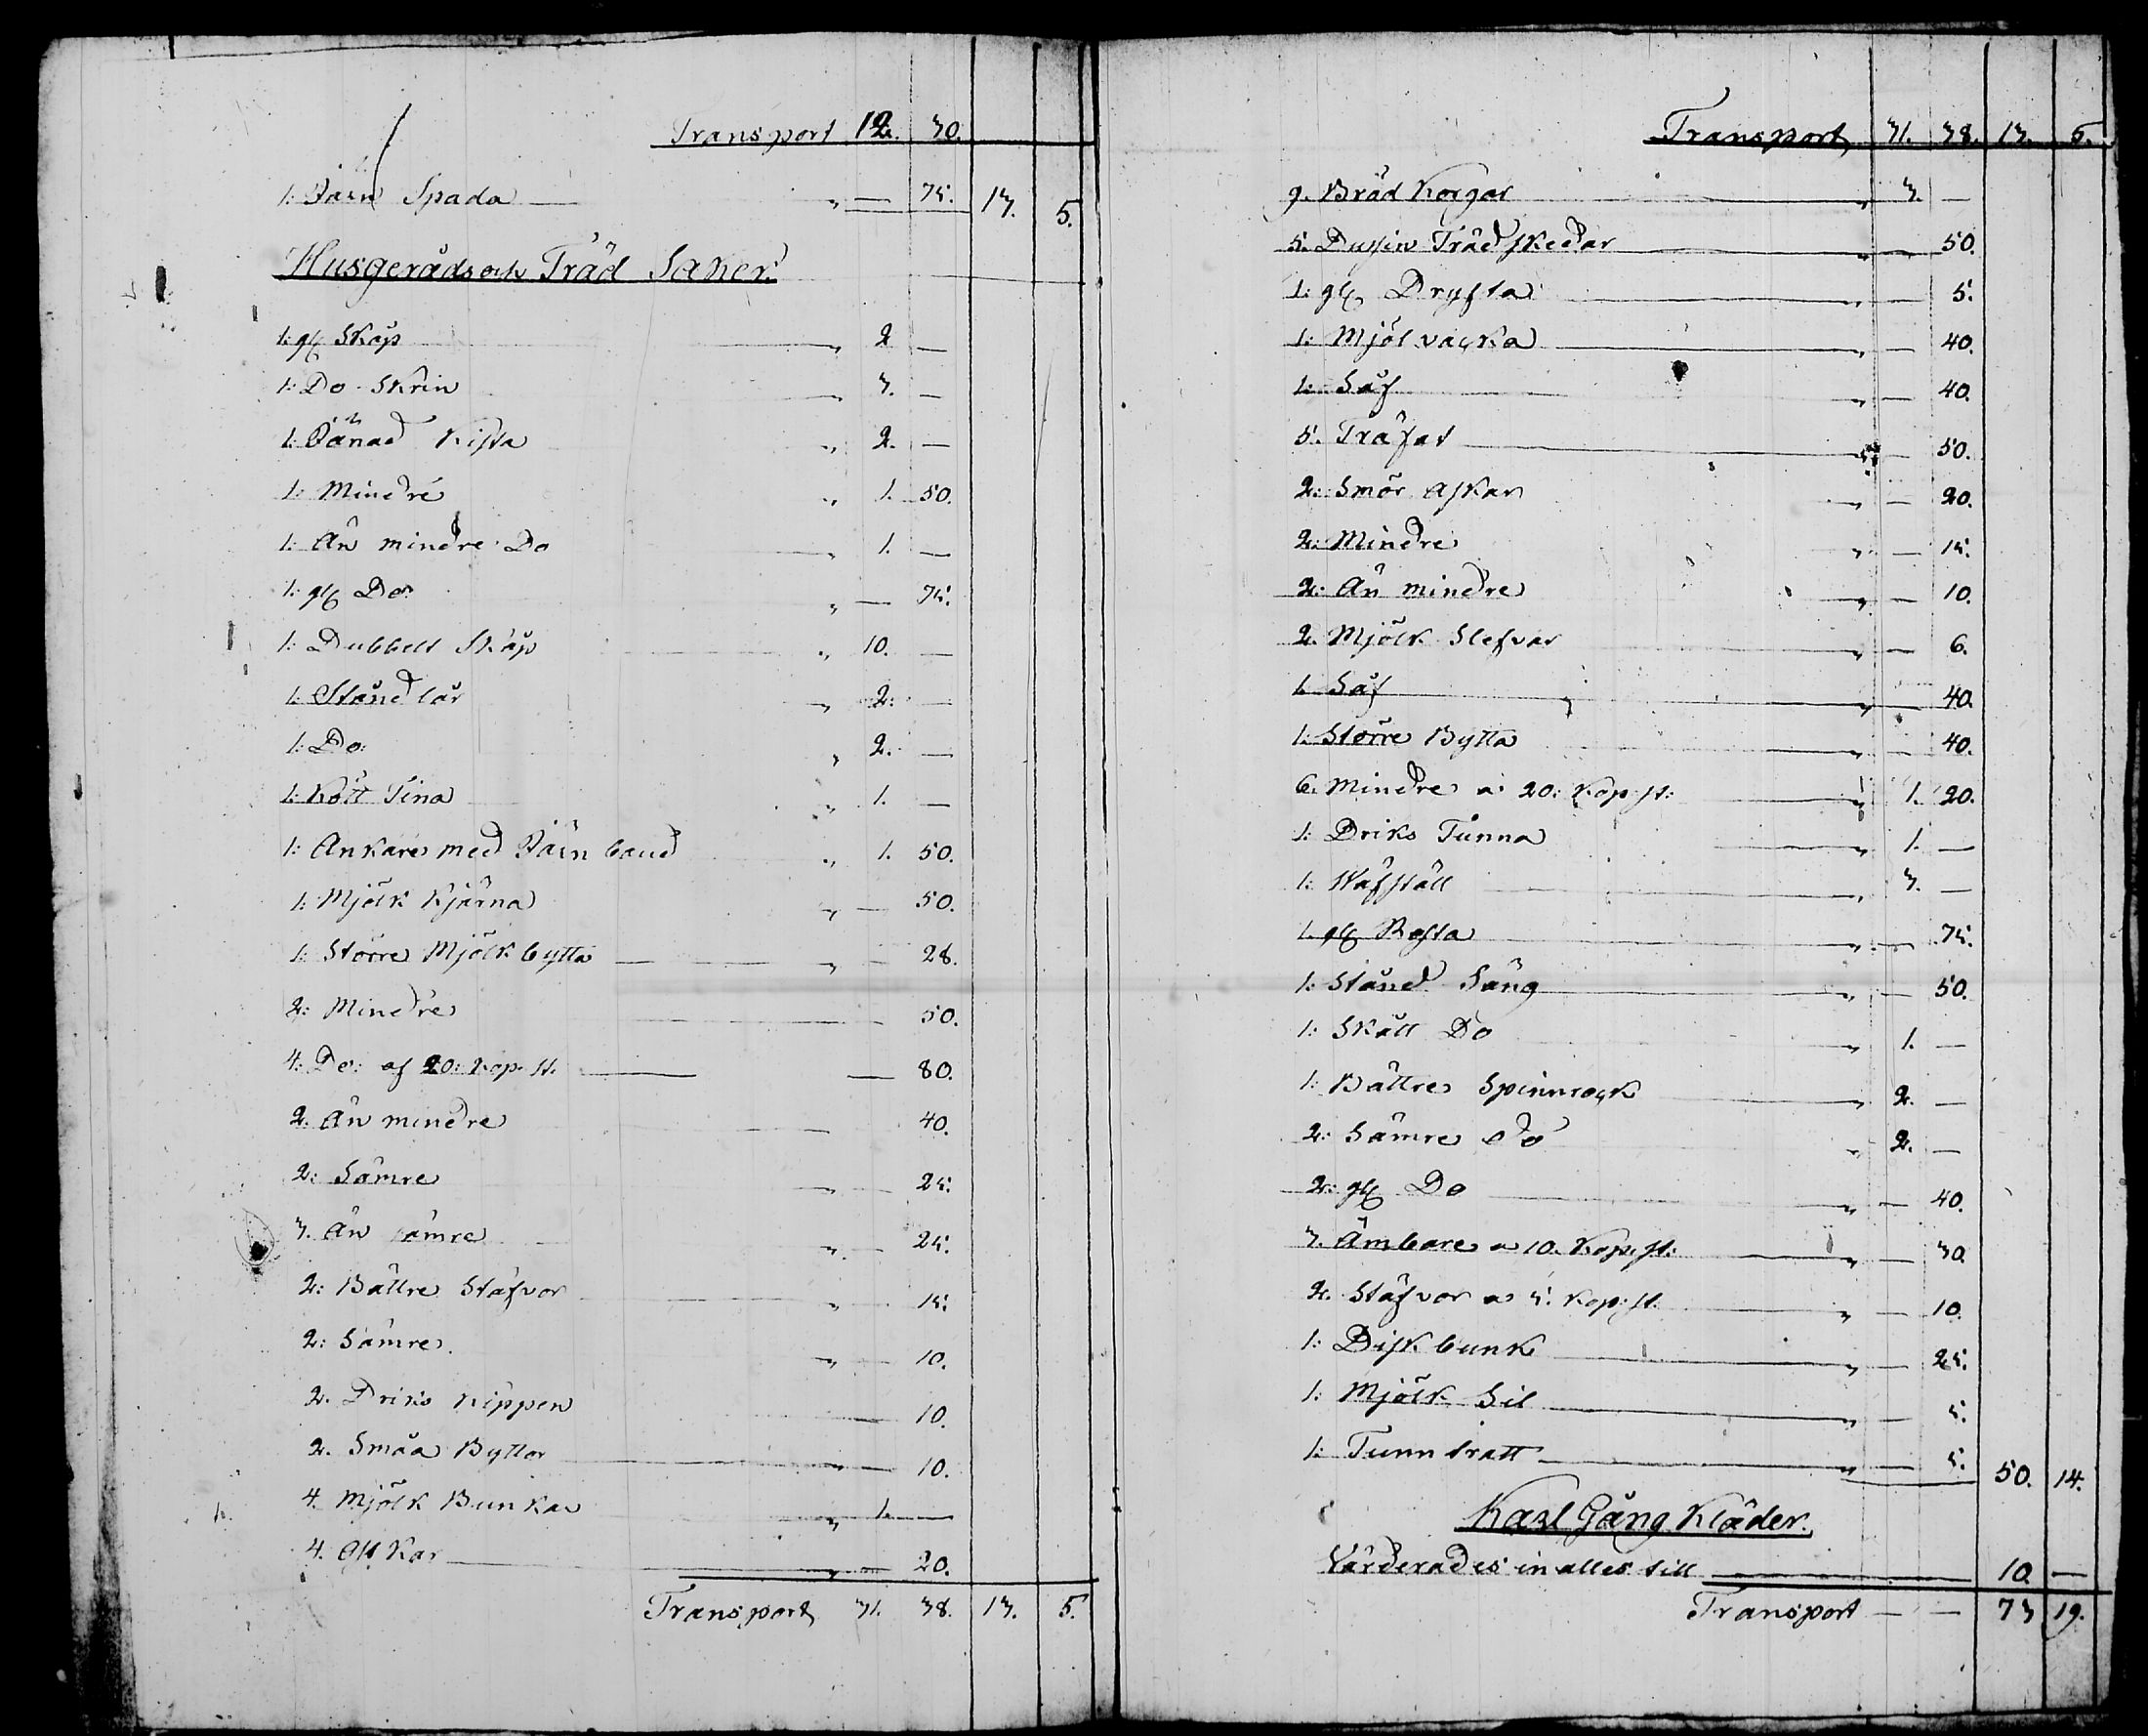 Transport 12. 30.
1: Järn Spada " — 75. 13. 5.
Husgeråds och Träd Saker.
1: gl Skåp " 2 —
1: Do Skrin " 3. —
1: Jänad Kista " 2. —
1: Mindre " 1. 50.
1: Än mindre Do " 1. —
1: gl Do: " — 75.
1: Dubbelt Skåp " 10. —
1: Stånd lår " 2: —
1: Do: " 2. —
1: Kött Tina " 1. —
1: Ankare med Järn band " 1. 50.
1: Mjölk Kjärna " — 50.
1: Större Mjölk bytta " — 28.
2: Mindre — 50.
4: Do: af 20: Kop. st. — 80.
2. Än mindre 40.
2: Sämre " — 25.
3. Än sämre " — 25.
2: Bättre Stäfvor " — 15.
2: Sämre " — 10.
2. Driks Kippen — 10.
2. Småa Byttor " — 10.
4. Mjölk Bunkar " 1. —
4. Ost Kar " — 20.
Transport 31. 38. 13. 5.
Transport 31. 38. 13. 5.
9. Bräd Korgar " 3. —
5. Dussin Träd skedar " — 50.
1: gl Dryfta " — 5.
1: Mjöl vacka " — 40.
1: Såf " — 40.
5. Träfat " — 50.
2: Smör Askar " — 20.
2: Mindre " — 15.
2: Än mindre " — 10.
2. Mjölk Slefvar " — 6.
1. Såf " — 40.
1: Större Bytta " — 40.
6. Mindre a: 20: Kop: st: " 1. 20.
1: Driks Tunna " 1. —
1: Wäfställ " 3. —
1. gl Rosta " — 75.
1: Stånd Säng " — 50.
1: Skåll Do " 1. —
1: Bättre Spinnrock " 2. —
2: Sämre Do " 2. —
2: gl Do " — 40.
3. Ämbare a 10. Kop. st: " — 30.
2. Stäfvor a 5. Kop: st: " — 10.
1: Disk bunk " — 25.
1: Mjölk Sil " — 5.
1: Tunn tratt " — 5. 50. 14.
Karl Gång Kläder.
Värderades in alles till 10 —
Transport — — 73 19.